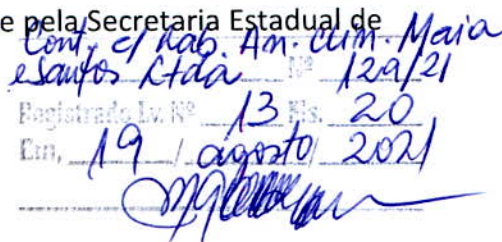 e pela Secretaria Estadual de
Cont. c/ Lab. An. Clín. Maia
e Santos Ltda Nº 129/21
Registrado Lv. Nº 13 Fls. 20
Em, 19 / agosto / 2021